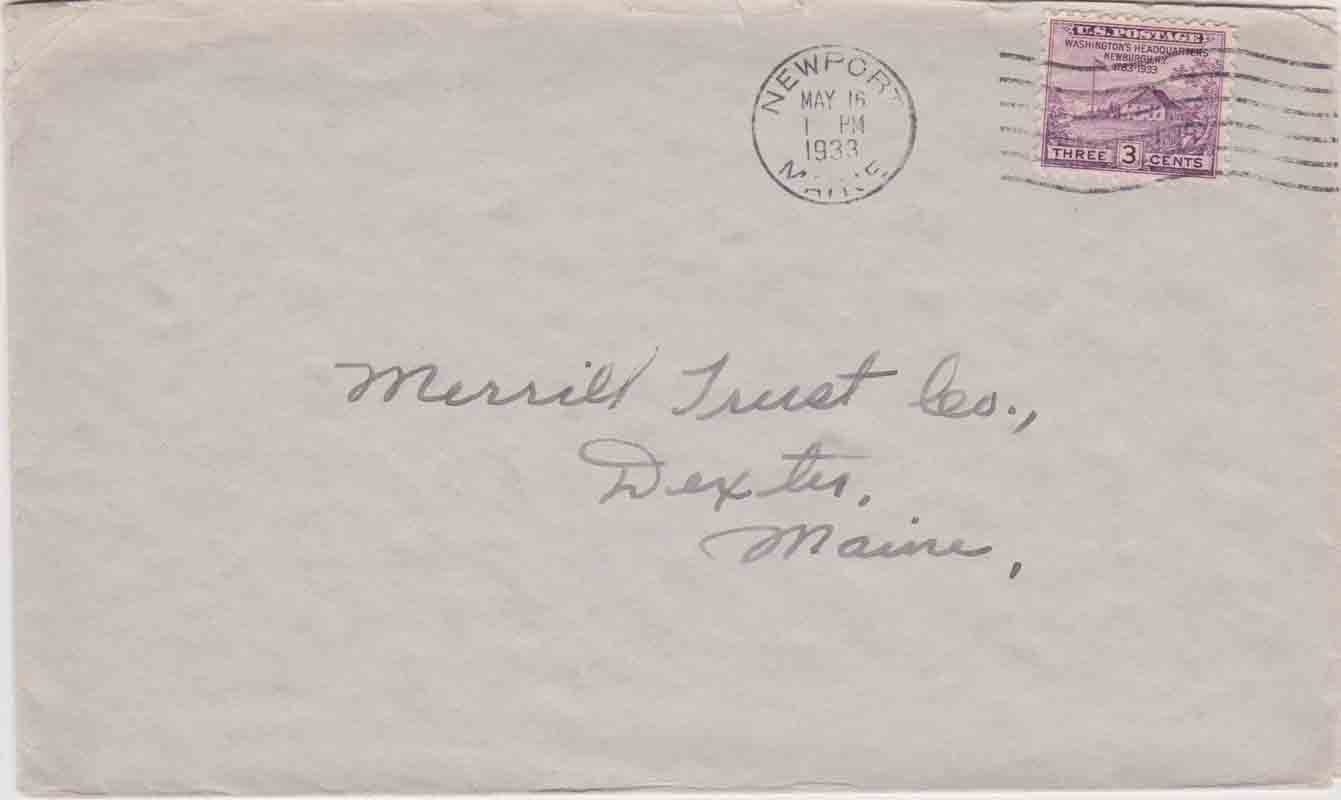 NEWPORT
MAY 16
1 PM
1933
MAINE.
U.S. POSTAGE
WASHINGTON'S HEADQUARTERS
NEWBURGH N.Y.
1783-1933
THREE 3 CENTS
Merrill Trust Co.,
Dexter,
Maine,